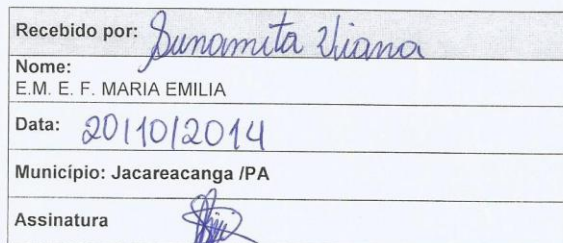 Recebido por: Sunamita Viana
Nome:
E.M. E. F. MARIA EMILIA
Data: 20/10/2014
Município: Jacareacanga /PA
Assinatura